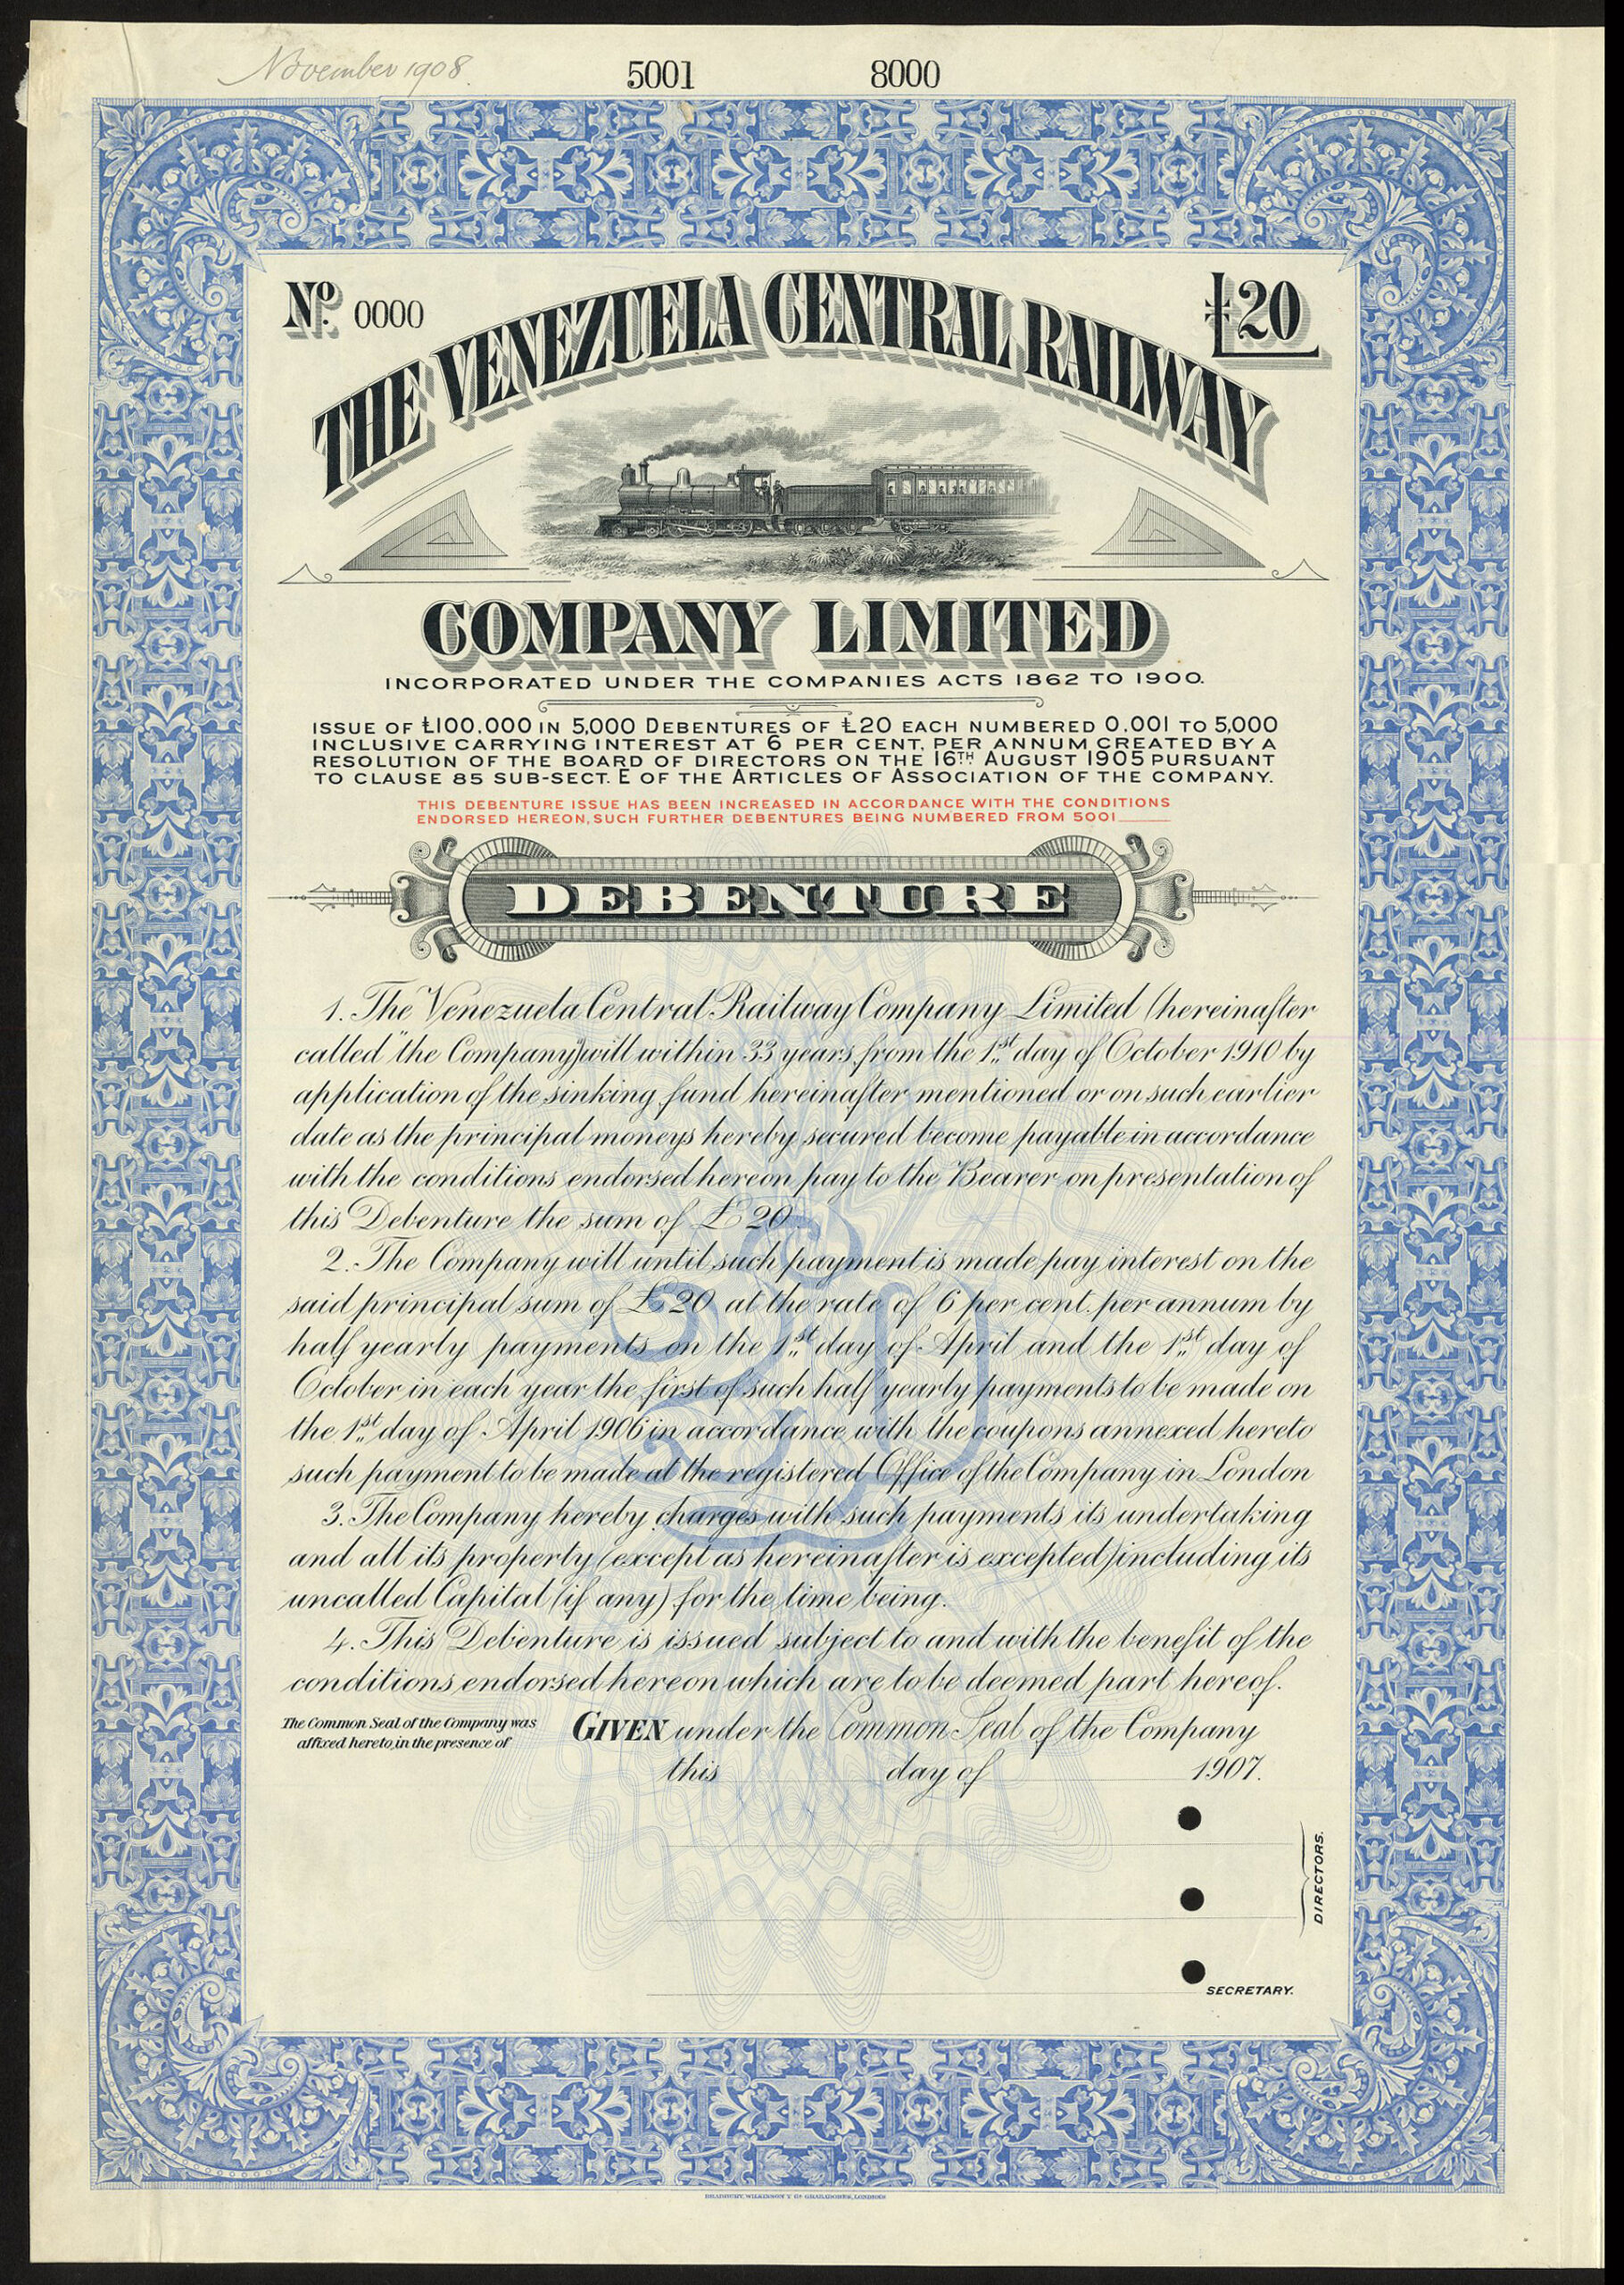 November 1908.
5001 8000
No. 0000
£20
THE VENEZUELA CENTRAL RAILWAY
COMPANY LIMITED
INCORPORATED UNDER THE COMPANIES ACTS 1862 TO 1900.
ISSUE OF £100,000 IN 5,000 DEBENTURES OF £20 EACH NUMBERED 0,001 TO 5,000
INCLUSIVE CARRYING INTEREST AT 6 PER CENT. PER ANNUM CREATED BY A
RESOLUTION OF THE BOARD OF DIRECTORS ON THE 16TH AUGUST 1905 PURSUANT
TO CLAUSE 85 SUB-SECT. E OF THE ARTICLES OF ASSOCIATION OF THE COMPANY.
THIS DEBENTURE ISSUE HAS BEEN INCREASED IN ACCORDANCE WITH THE CONDITIONS
ENDORSED HEREON, SUCH FURTHER DEBENTURES BEING NUMBERED FROM 5001
DEBENTURE
1. The Venezuela Central Railway Company Limited (hereinafter
called "the Company") will within 33 years from the 1st day of October 1910 by
application of the sinking fund hereinafter mentioned or on such earlier
date as the principal moneys hereby secured become payable in accordance
with the conditions endorsed hereon pay to the Bearer on presentation of
this Debenture the sum of £20.
2. The Company will until such payment is made pay interest on the
said principal sum of £20 at the rate of 6 per cent. per annum by
half yearly payments on the 1st day of April and the 1st day of
October in each year the first of such half yearly payments to be made on
the 1st day of April 1906 in accordance with the coupons annexed hereto
such payment to be made at the registered Office of the Company in London
3. The Company hereby charges with such payments its undertaking
and all its property (except as hereinafter is excepted) including its
uncalled Capital (if any) for the time being.
4. This Debenture is issued subject to and with the benefit of the
conditions endorsed hereon which are to be deemed part hereof.
The Common Seal of the Company was
affixed hereto in the presence of
GIVEN under the Common Seal of the Company
this day of 1907.
DIRECTORS.
SECRETARY.
BRADBURY, WILKINSON Y Ca. GRABADORES, LONDRES